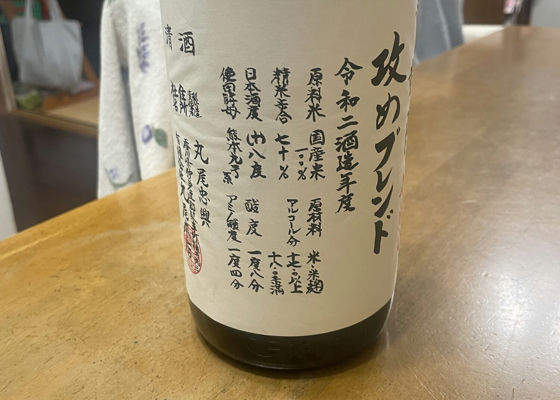 攻めブレンド
令和二酒造年度
原料米 国産米 一〇〇%
原材料 米・米麹
精米歩合 七十%
アルコール分 十七・〇以上 十八・〇未満
日本酒度 (+)八度
酸度 一度八分
使用酵母 熊本九号系
アミノ酸度 一度四分
清酒
丸尾忠興